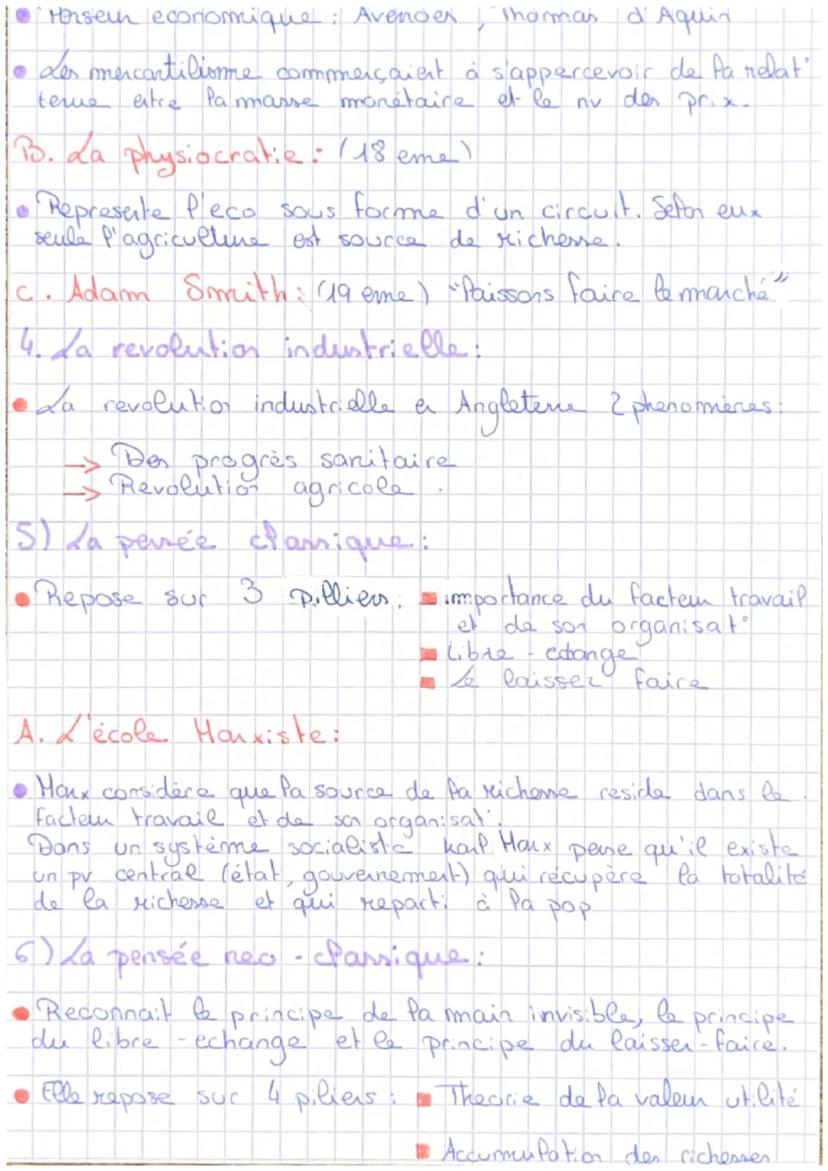 • Penseur economique : Averoes, Thomas d'Aquin
• Les mercantilisme commerçaient à s'appercevoir de la relat°
tenue entre la masse monétaire et le nv des prix.
B. La physiocratie : (18 eme)
• Represente l'eco sous forme d'un circuit. Selon eux
seule l'agriculture est source de richesse.
C. Adam Smith : (19 eme) "laissons faire le marché"
4. La revolution industrielle :
• La revolution industrielle en Angleterre 2 phenomènes :
→ Des progrès sanitaire
→ Revolution agricole .
5) La pensée classique :
• Repose sur 3 pilliers : ▪ importance du facteur travail
et de son organisat°
▪ Libre - echange
▪ Le laissez faire
A. L'école Marxiste :
• Marx considère que la source de la richesse reside dans le
facteur travail et de son organisat°.
Dans un système socialiste karl Marx pense qu'il existe
un pv central (état, gouvernement) qui récupère la totalité
de la richesse et qui reparti à la pop
6) La pensée neo - classique :
• Reconnait le principe de la main invisible, le principe
du libre - echange et le principe du laisser - faire.
• Elle repose sur 4 piliers : ▪ Theorie de la valeur utilité
▪ Accummulation des richesses